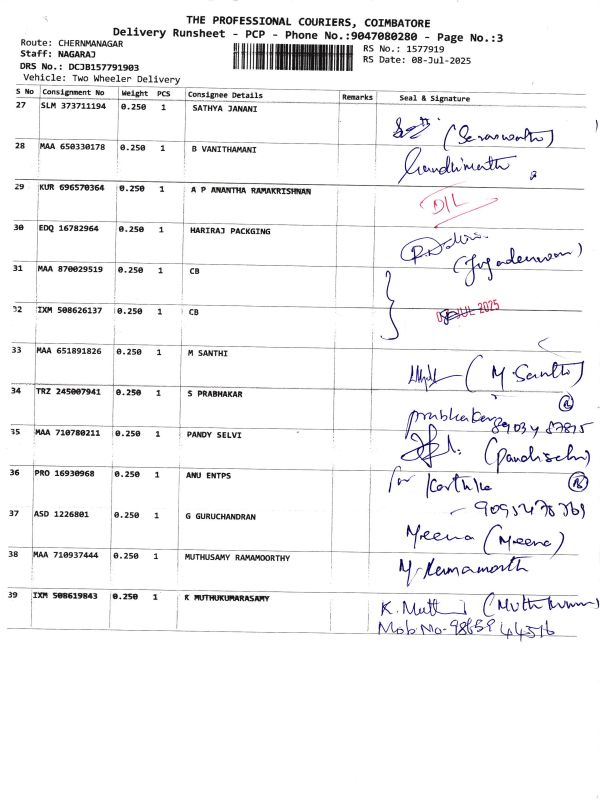 THE PROFESSIONAL COURIERS, COIMBATORE
Delivery Runsheet - PCP - Phone No.:9047080280 - Page No.:3
Route: CHERNMANAGAR
Staff: NAGARAJ
DRS No.: DCJB157791903
Vehicle: Two Wheeler Delivery
RS No.: 1577919
RS Date: 08-Jul-2025
S No Consignment No Weight PCS Consignee Details Remarks Seal & Signature
27 SLM 373711194 0.250 1 SATHYA JANANI
(Saraswathi)
28 MAA 650330178 0.250 1 B VANITHAMANI
Gandhimathi
29 KUR 696570364 0.250 1 A P ANANTHA RAMAKRISHNAN
D/L
30 EDQ 16782964 0.250 1 HARIRAJ PACKGING
31 MAA 870029519 0.250 1 CB
32 IXM 508626137 0.250 1 CB
JUL 2025
33 MAA 651891826 0.250 1 M SANTHI
(M. Santhi)
34 TRZ 245007941 0.250 1 S PRABHAKAR
prabhakar
35 MAA 710780211 0.250 1 PANDY SELVI
(Pandiselvi)
36 PRO 16930968 0.250 1 ANU ENTPS
for Karthika
37 ASD 1226801 0.250 1 G GURUCHANDRAN
Meena (Meena)
38 MAA 710937444 0.250 1 MUTHUSAMY RAMAMOORTHY
39 IXM 508619843 0.250 1 K MUTHUKUMARASAMY
K. Mutt
Mob No- 98659 44516